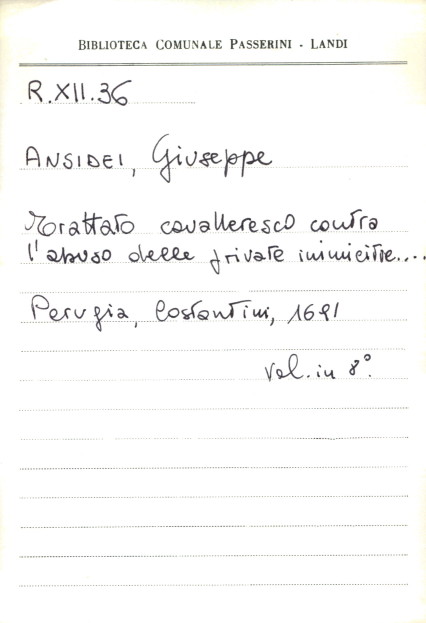 BIBLIOTECA COMUNALE PASSERINI - LANDI
R.XII.36
ANSIDEI, Giuseppe
Trattato cavalleresco contra
l'abuso delle private inimicitie....
Perugia, Costantini, 1691
Vol. in 8°.